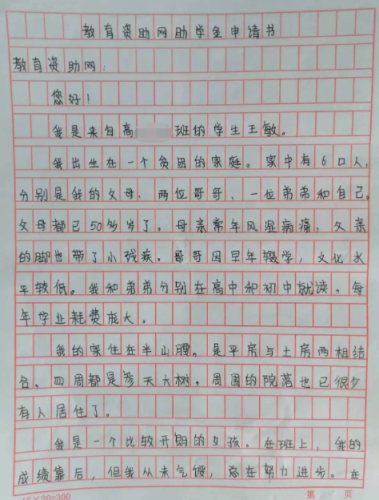 教育资助网助学金申请书
教育资助网:
您好!
我是来自高 班的学生王敏。
我出生在一个贫困的家庭。家中有6口人,
分别是我的父母、两位哥哥、一位弟弟和自己。
父母都已50多岁了。母亲常年风湿病痛,父亲
的脚也带了小残疾。哥哥因早年辍学,文化水
平较低。我和弟弟分别在高中和初中就读。每
年学业耗费庞大。
我的家住在半山腰。是平房与土房两相结
合。四周都是参天大树。周围的院落也已很少
有人居住了。
我是一个比较开朗的女孩。在班上,我的
成绩靠后,但我从未气馁,都在努力进步。在
15×20=300
第 页